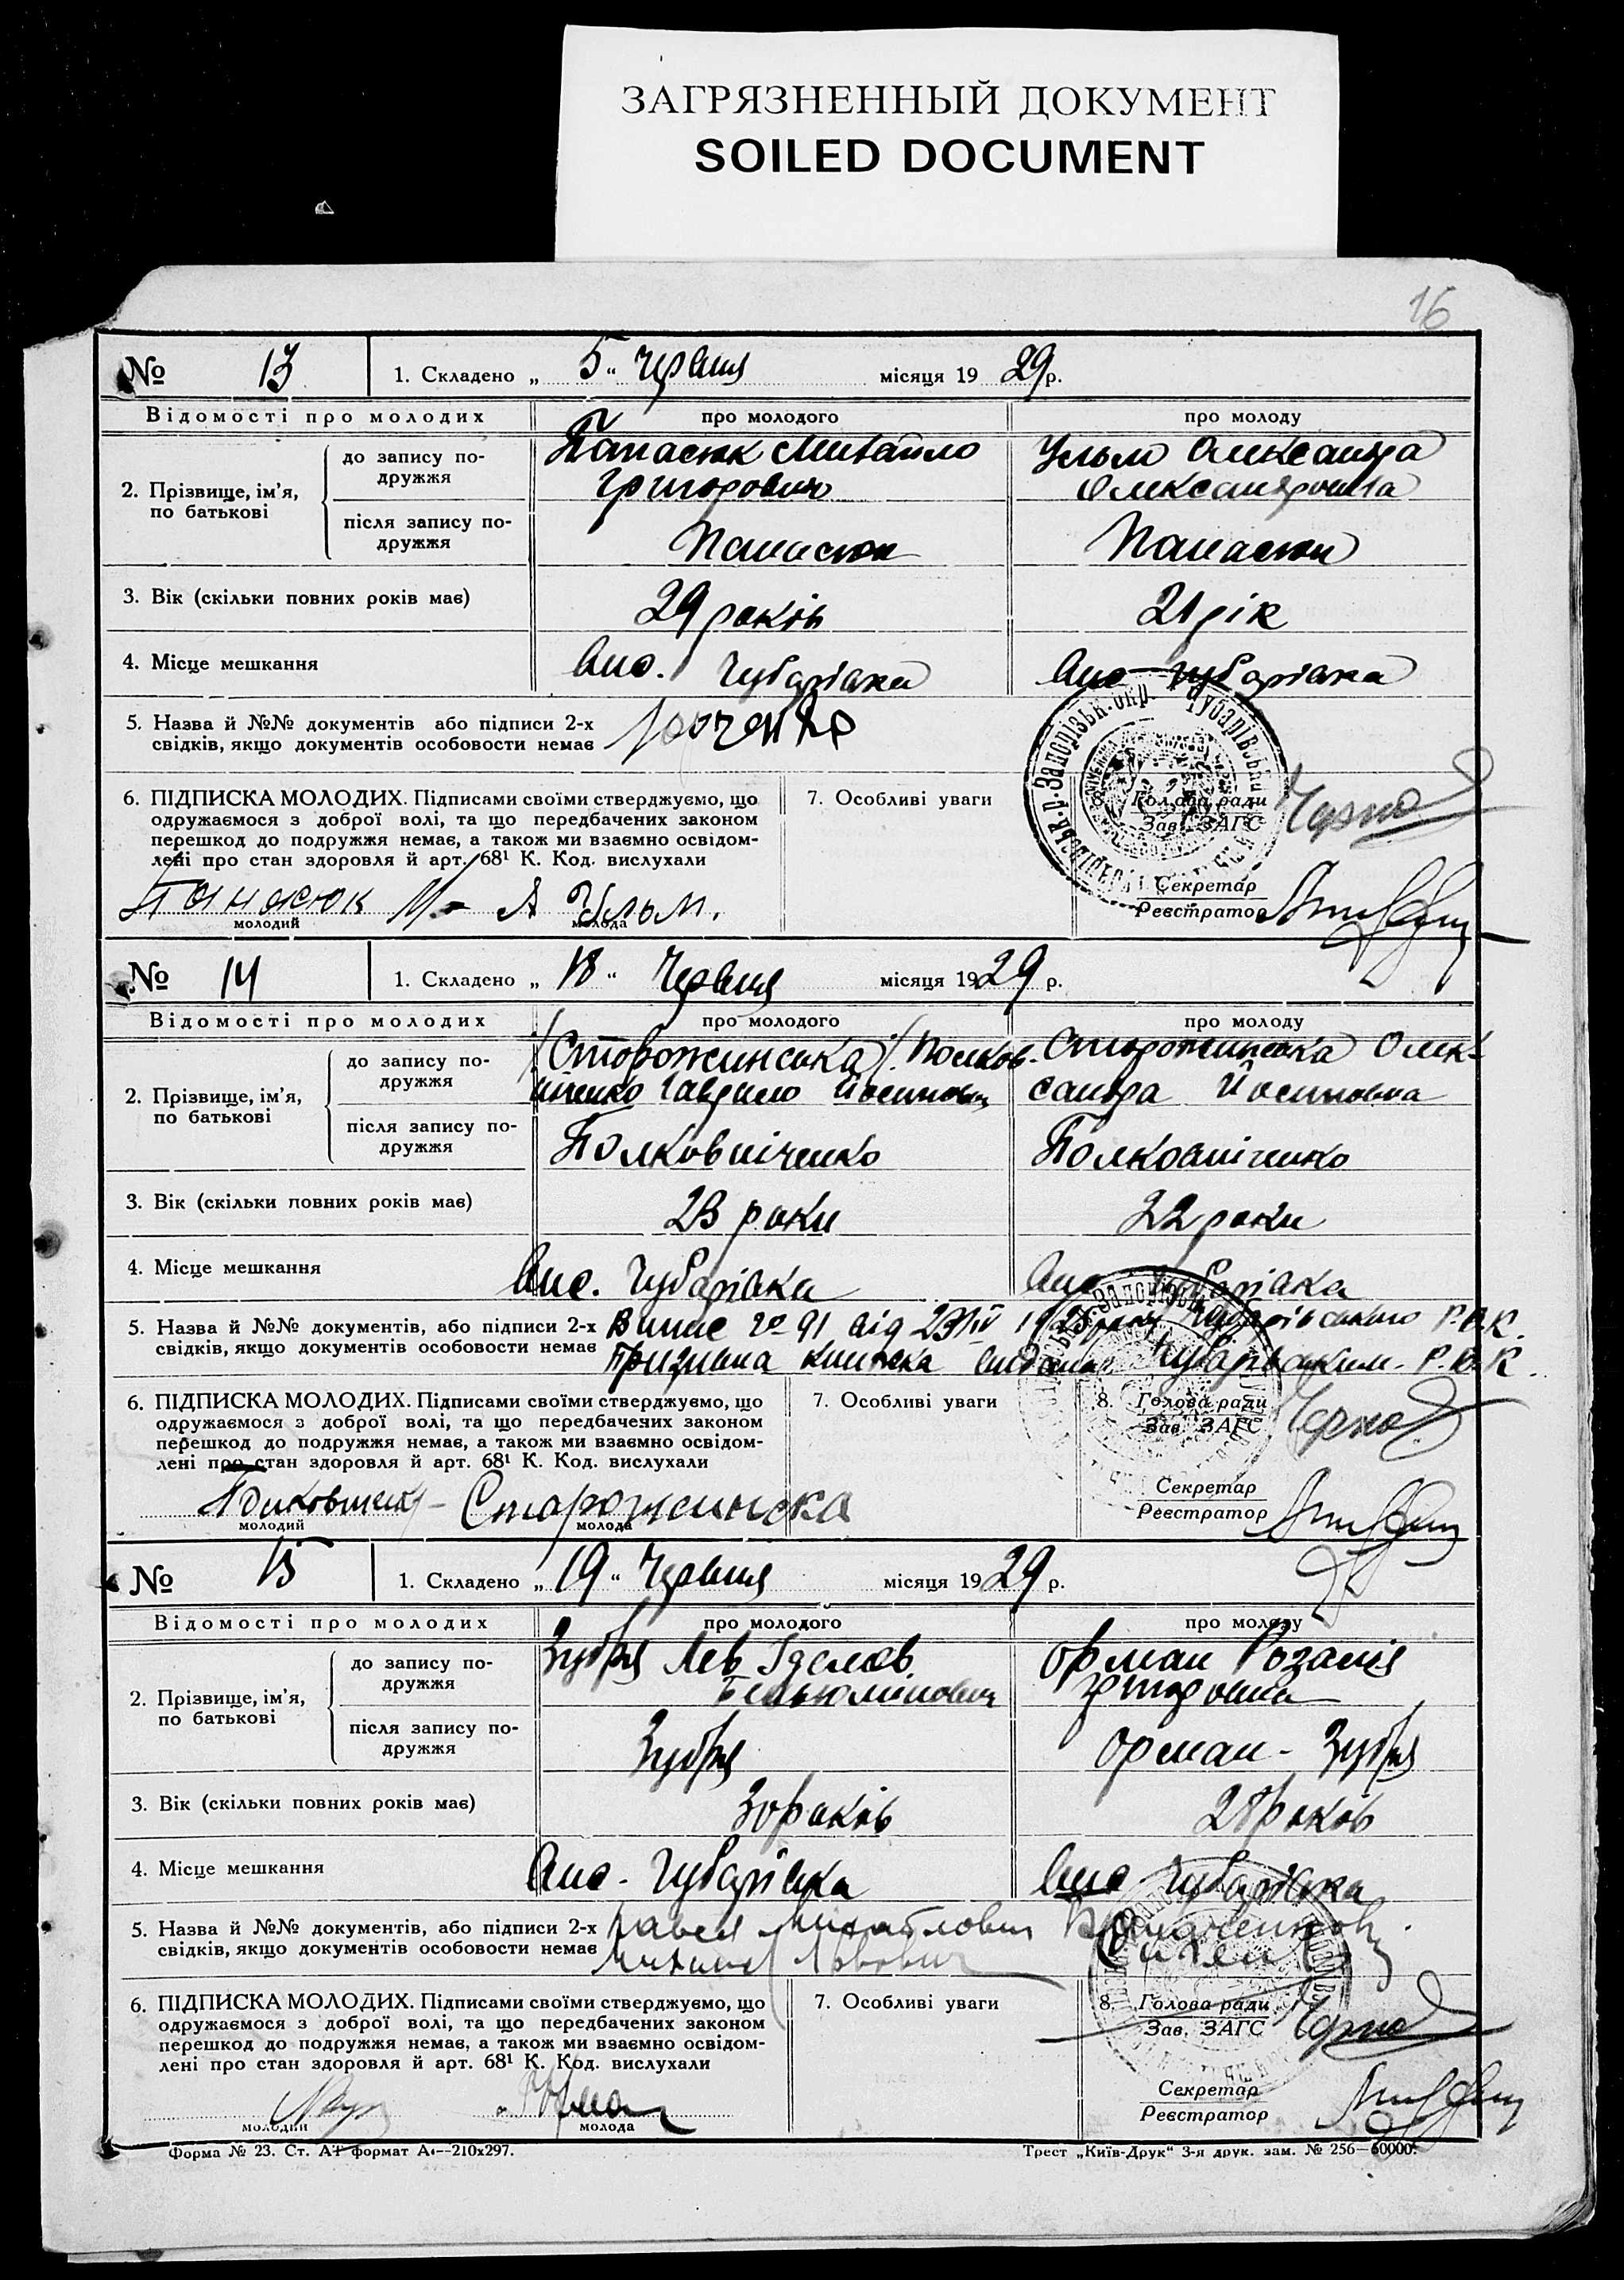 ЗАГРЯЗНЕННЫЙ ДОКУМЕНТ
SOILED DOCUMENT
16
№ 13 1. Складено „ 5 “ Червня місяця 19 29 р.
Відомості про молодих про молодого про молоду
2. Прізвище, ім’я, по батькові
до запису по-
дружжя
Панасюк Михайло
Григорович
Ульм Олександра
Олександровна
після запису по-
дружжя
Панасюк Панасюк
3. Вік (скільки повних років має) 29 років 21 рік
4. Місце мешкання Чубарівка Чубарівка
5. Назва й №№ документів або підписи 2-х
свідків, якщо документів особовости немає
6. ПІДПИСКА МОЛОДИХ. Підписами своїми стверджуємо, що
одружаємося з доброї волі, та що передбачених законом
перешкод до подружжя немає, а також ми взаємно освідом-
лені про стан здоровля й арт. 68¹ К. Код. вислухали
Панасюк М А Ульм.
молодий молода
7. Особливі уваги
8. Голова ради
Зав. ЗАГС
Секретар
Реєстратор
№ 14 1. Складено „ 18 “ Червня місяця 19 29 р.
Відомості про молодих про молодого про молоду
2. Прізвище, ім’я,
по батькові
до запису по-
дружжя
/Сторожинська/. Полков-
ніченко Гаврило Йосипович
Сторожинська Олек-
сандра Йосиповна
після запису по-
дружжя
Полковніченко Полковніченко
3. Вік (скільки повних років має) 23 роки 22 роки
4. Місце мешкання Чубарівка Чубарівка
5. Назва й №№ документів, або підписи 2-х
свідків, якщо документів особовости немає
Чубарівського Р.В.К.
книжка Чубарівським Р.В.К.
6. ПІДПИСКА МОЛОДИХ. Підписами своїми стверджуємо, що
одружаємося з доброї волі, та що передбачених законом
перешкод до подружжя немає, а також ми взаємно освідом-
лені про стан здоровля й арт. 68¹ К. Код. вислухали
Сторожинска
молодий молода
7. Особливі уваги
8. Голова ради
Зав. ЗАГС
Секретар
Реєстратор
№ 15 1. Складено „ 19 “ Червня місяця 19 29 р.
Відомості про молодих про молодого про молоду
2. Прізвище, ім’я,
по батькові
до запису по-
дружжя
Лев
Орман Розалія
після запису по-
дружжя
Орман -
3. Вік (скільки повних років має) 30 років 28 років
4. Місце мешкання Чубарівка Чубарівка
5. Назва й №№ документів, або підписи 2-х
свідків, якщо документів особовости немає
Павел Михайлович
Львович
6. ПІДПИСКА МОЛОДИХ. Підписами своїми стверджуємо, що
одружаємося з доброї волі, та що передбачених законом
перешкод до подружжя немає, а також ми взаємно освідом-
лені про стан здоровля й арт. 68¹ К. Код. вислухали
молодий молода
7. Особливі уваги
8. Голова ради
Зав. ЗАГС
Секретар
Реєстратор
Форма № 23. Ст. А4 формат А4—210х297. Трест „Київ-Друк“ 3-я друк. зам. № 256—60000.